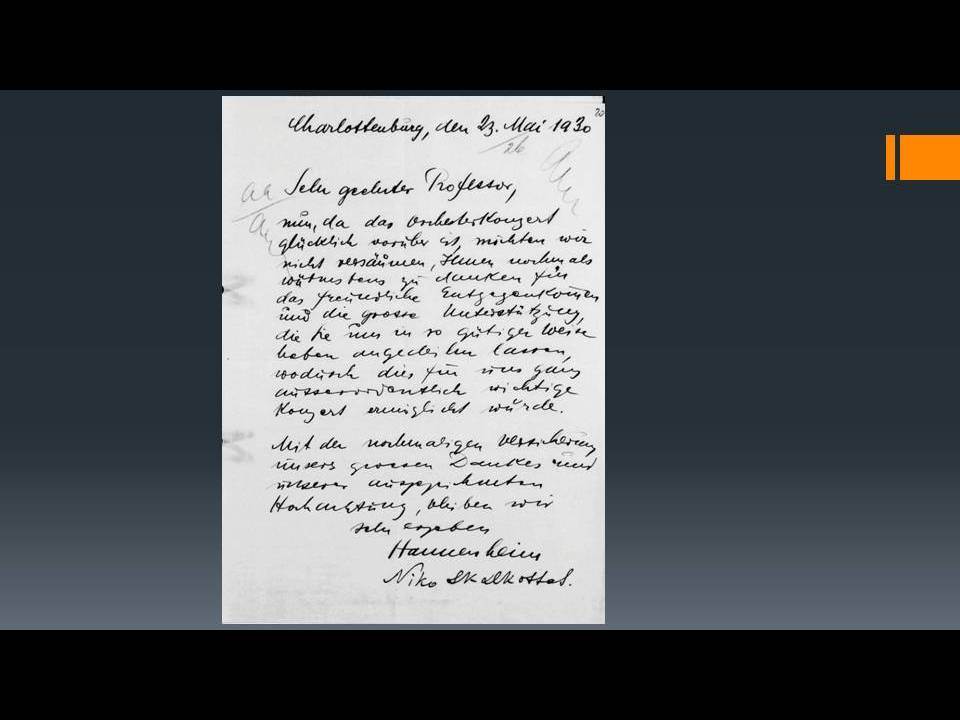 Charlottenburg, den 23. Mai 1930
Sehr geehrter Professor,
nun, da das Orchesterkonzert
glücklich vorüber ist, möchten wir
nicht versäumen, Ihnen nochmals
wärmstens zu danken für
das freundliche Entgegenkommen
und die grosse Unterstützung,
die Sie uns in so gütiger Weise
haben angedeihen lassen,
wodurch dies für uns ganz
ausserordentlich wichtige
Konzert ermöglicht wurde.
Mit der nochmaligen Versicherung
unsers grossen Dankes und
unserer ausgezeichneten
Hochachtung, bleiben wir
sehr ergeben
Hannenheim
Niko Skalkottas.